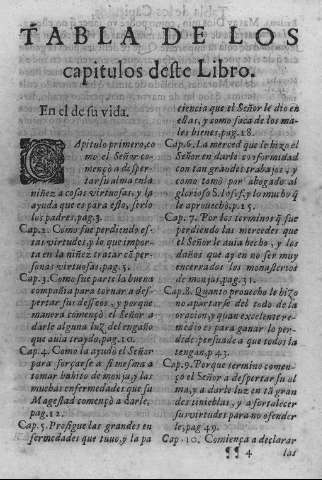 TABLA DE LOS
capitulos deste Libro.
En el de su vida.
Capitulo primero, co
mo el Señor co-
mençò a desper-
tar su alma en la
niñez a cosas virtuosas, y la
ayuda que es para esto, serlo
los padres, pag. 3.
Cap. 2. Como fue perdiendo es-
tas virtudes, y lo que impor-
ta en la niñez tratar cō per-
sonas virtuosas, pag. 5.
Cap. 3. Como fue parte la buena
compañia para tornar a des-
pertar sus desseos, y porque
manera començò el Señor a
darle alguna luz del engaño
que auia traydo, pag. 10.
Cap. 4. Como la ayudò el Señor
para forçarse a si mesma a
tomar habito de monja, y las
muchas enfermedades que su
Magestad començò a darle,
pag. 12.
Cap. 5. Prosigue las grandes en
fermedades que tuuo, y la pa
ciencia que el Señor le dio en
ellas, y como saca de los ma-
les bienes, pag. 18.
Cap. 6. La merced que le hizo el
Señor en darle conformidad
con tan grandes trabajos, y
como tomò por abogado al
glorioso S. Iosef, y lo mucho q̃
le aprouechò, p. 25.
Cap. 7. Por los terminos q̃ fue
perdiendo las mercedes que
el Señor le auia hecho, y los
daños que ay en no ser muy
encerrados los monasterios
de monjas, pag. 31.
Cap. 8. Quanto prouecho le hizo
no apartarse del todo de la
oracion, y quan excelente re-
medio es para ganar lo per-
dido: persuade a que todos la
tengan. p 43.
Cap. 9. Porque termino comen-
ço el Señor a despertar su al
ma, y a darle luz en tā gran
des tinieblas, y a fortalecer
sus virtudes para no ofender
le, pag 49.
Cap. 10. Comiença a declarar
¶¶ 4 las